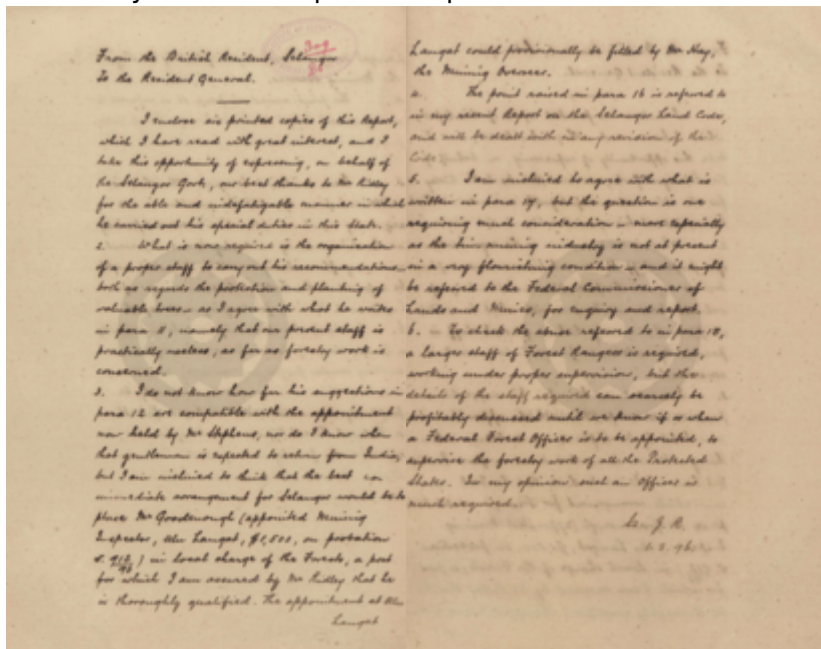 From the British Resident, Selangor
To the Resident General.
309
I enclose six printed copies of this Report,
which I have read with great interest, and I
take this opportunity of expressing, on behalf of
the Selangor Govt, our best thanks to Mr Ridley
for the able and indefatigable manner in which
he carried out his special duties in this State.
2. What is now required is the organization
of a proper staff to carry out his recommendations
both as regards the protection and planting of
valuable trees as I agree with what he writes
in para 11, namely that our present staff is
practically useless, as far as forestry work is
concerned.
3. I do not know how far his suggestions in
para 12 are compatible with the appointment
now held by Mr Stephens, nor do I know when
that gentleman is expected to return from India,
but I am inclined to think that the best
immediate arrangement for Selangor would be to
place Mr Goodenough (appointed Mining
Inspector, Ulu Langat, $1,500, on probation
) in local charge of the Forests, a post
for which I am assured by Mr Ridley that he
is thoroughly qualified. The appointment at Ulu
Langat
Langat could provisionally be filled by Mr Hay,
the Mining Overseer.
The point raised in para 16 is referred to
in my recent Report on the Selangor Land Code,
and will be dealt with in any revision of the
Code
5. I am inclined to agree with what is
written in para 17, but the question is one
requiring much consideration more especially
as the tin mining industry is not at present
in a very flourishing condition and it might
be referred to the Federal Commissioner of
Lands and Mines, for enquiry and report.
6. To check the abuse referred to in para 18,
a larger staff of Forest Rangers is required,
working under proper supervision, but the
details of the staff required can scarcely be
profitably discussed until we know if or when
a Federal Forest Officer is to be appointed, to
supervise the forestry work of all the Protected
States. In my opinion such an Officer is
much required.